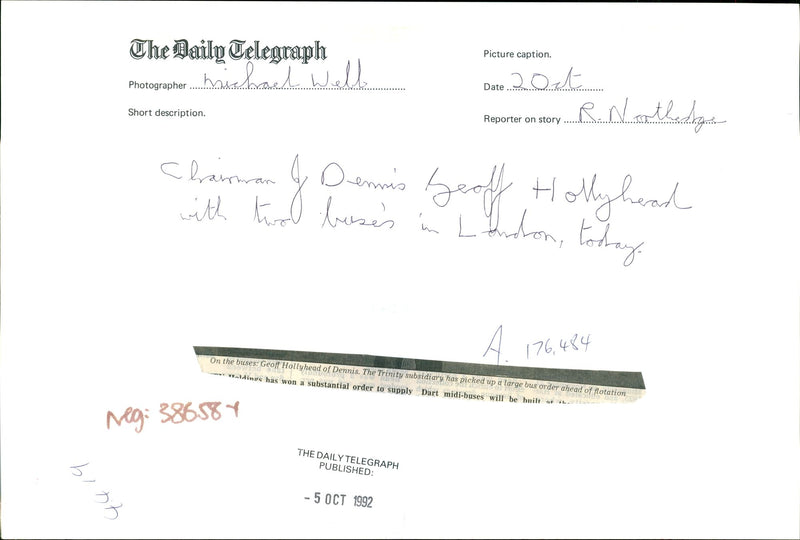 The Daily Telegraph
Picture caption.
Photographer Michael Webb
Date 2 Oct
Short description.
Reporter on story R. Northedge
Chairman of Dennis Geoff Hollyhead
with two buses in London, today.
A. 176,484
On the buses: Geoff Hollyhead of Dennis. The Trinity subsidiary has picked up a large bus order ahead of flotation
Holdings has won a substantial order to supply Dart midi-buses will be built at the
Neg: 38658
THE DAILY TELEGRAPH
PUBLISHED:
- 5 OCT 1992